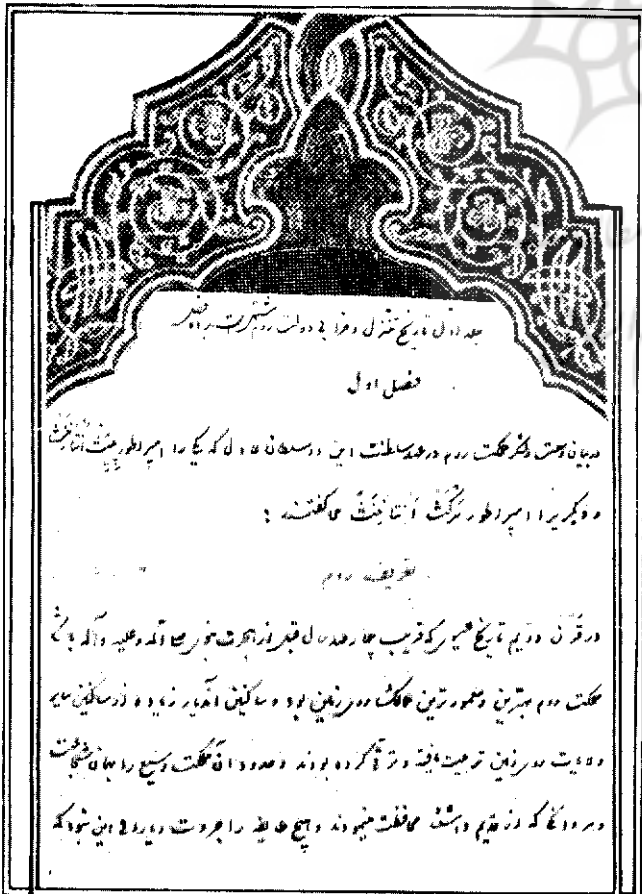 جلد اول تاریخ تنزل و خرابی دولت روم
فصل اول
در بیان وسعت و لشکر مملکت روم در عهد سلطنت این دو سلطان عادل که یکی را امپراطور
و دیگری را امپراطور مرکث انتانینث میگفتند :
تعریف روم
در قرن دویم تاریخ عیسوی که قریب چهار صد سال قبل از هجرت نبوی صلی الله علیه و آله باشد
مملکت روم بهترین و معمورترین ممالک روی زمین بود و ساکنین آندیار زیاده از ساکنین سایر
ولایت روی زمین تربیت یافته و ترقی کرده بودند و حدود آن مملکت وسیع را بهمان شجاعت
و مردانگی که از قدیم داشتند محافظت مینمودند و هیچ طایفه را جرءت و یارای این نبود که